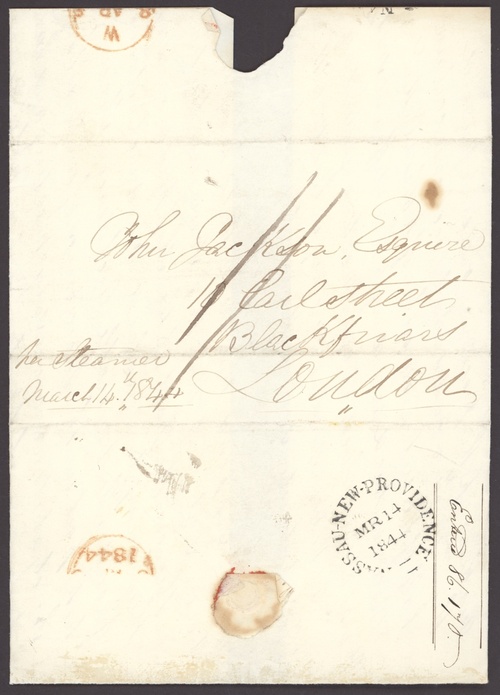 W
8 AP
John Jackson, Esquire
10 Earl Street
Blackfriars
London
per steamer
March 14th 1844
1/
NASSAU-NEW-PROVIDENCE
MR 14
1844
1844
Entd